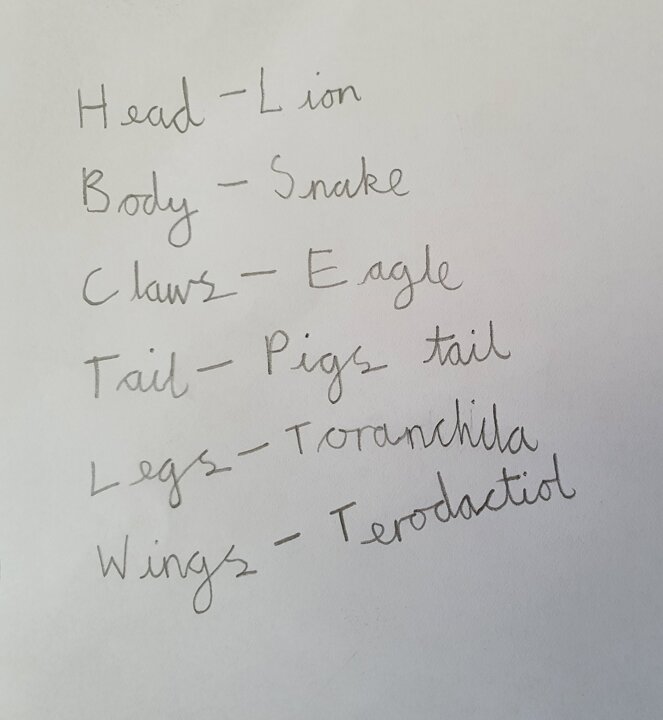 Head - Lion
Body - Snake
Claws - Eagle
Tail - Pigs tail
Legs - Toranchila
Wings - Terodactiol